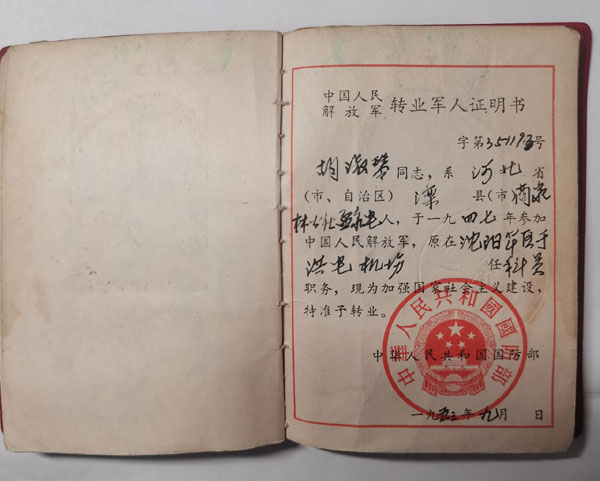 中国人民
解放军 转业军人证明书
字第351193号
胡淑琴同志，系 河北 省
(市、自治区) 深 县(市)商家
林公社 人，于一九四七年参加
中国人民解放军，原在沈阳军区于
洪屯机场 任科员
职务，现为加强国家社会主义建设，
特准予转业。
中华人民共和国国防部
一九五三年九月 日
中華人民共和國國防部